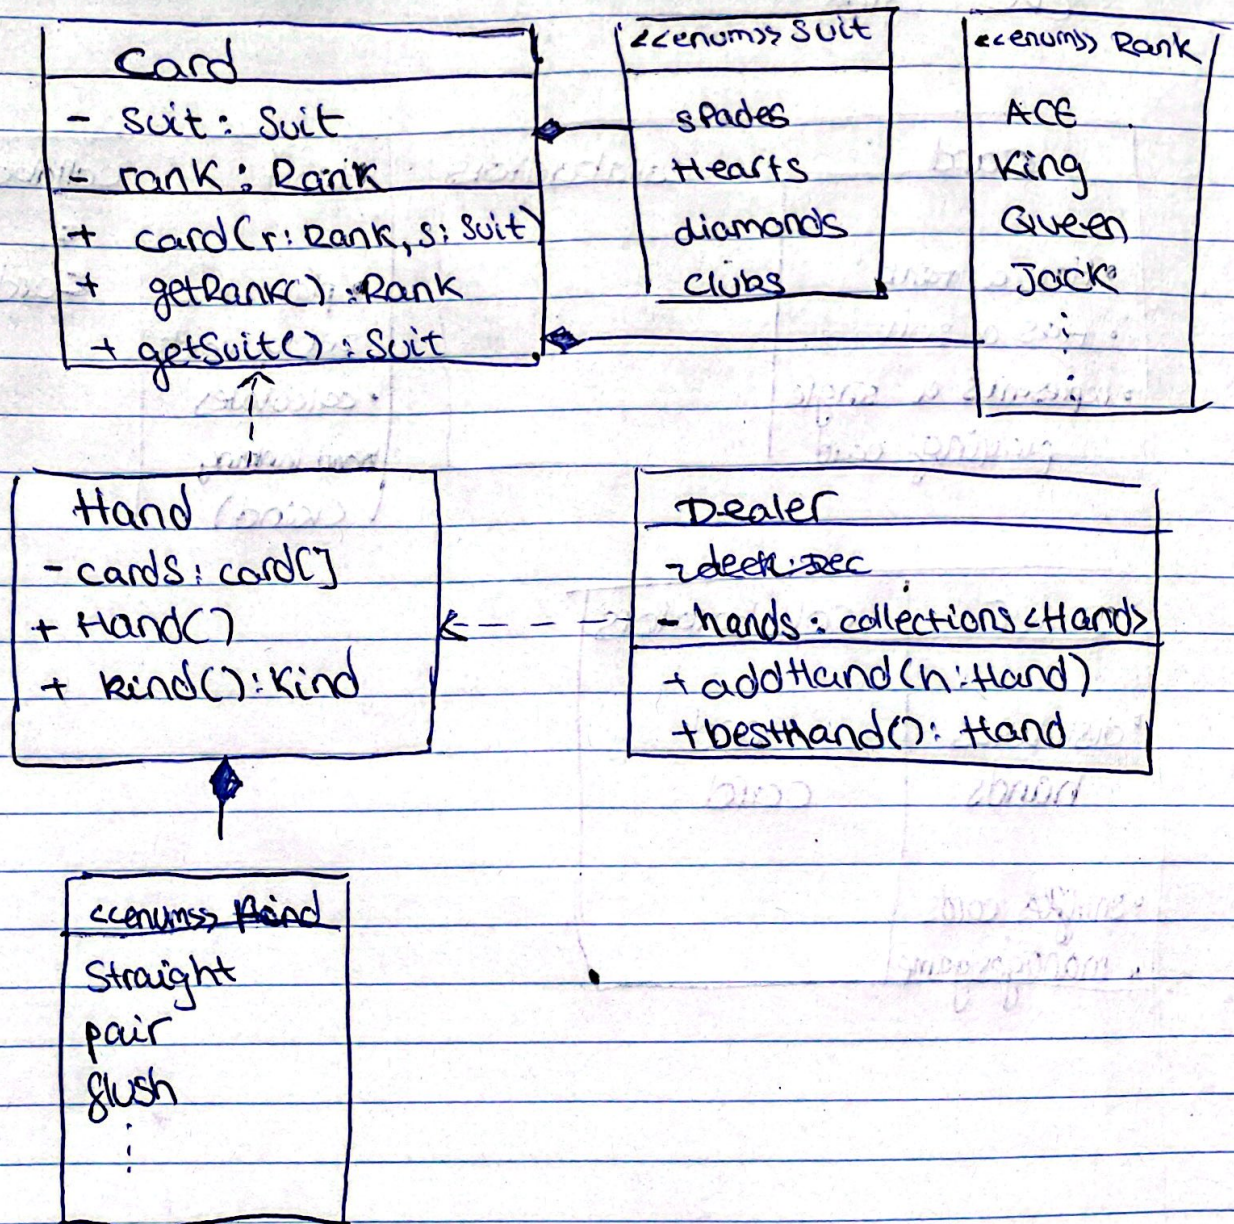 Card
- suit: Suit
- rank: Rank
+ card(r: Rank, s: Suit)
+ getRank(): Rank
+ getSuit(): Suit
<<enum>> Suit
spades
Hearts
diamonds
clubs
<<enum>> Rank
ACE
King
Queen
Jack
Hand
- cards: card[]
+ Hand()
+ kind(): Kind
Dealer
- hands: collections<Hand>
+ addHand(h: Hand)
+ bestHand(): Hand
<<enums>> Kind
Straight
pair
flush